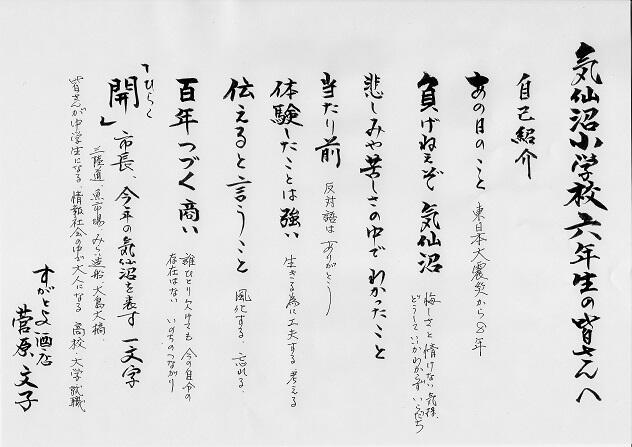 気仙沼小学校六年生の皆さんへ
自己紹介
あの日のこと 東日本大震災から8年
負げねえぞ 気仙沼 悔しさと情けない気持
どうしていいかわからず いらだち
悲しみや苦しさの中でわかったこと
当たり前 反対語は ありがとう
体験したことは強い 生きる為に工夫する 考える
伝えると言うこと 風化する、忘れる、
百年つづく商い 誰ひとり欠けても 今の自分の
存在はない いのちのつながり
「ひらく
開」市長、今年の気仙沼を表す一文字
三陸道、魚市場、みらい造船、大島大橋、
皆さんが中学生になる、情報社会の中で大人になる 高校、大学 就職
すがとよ酒店
菅原文子